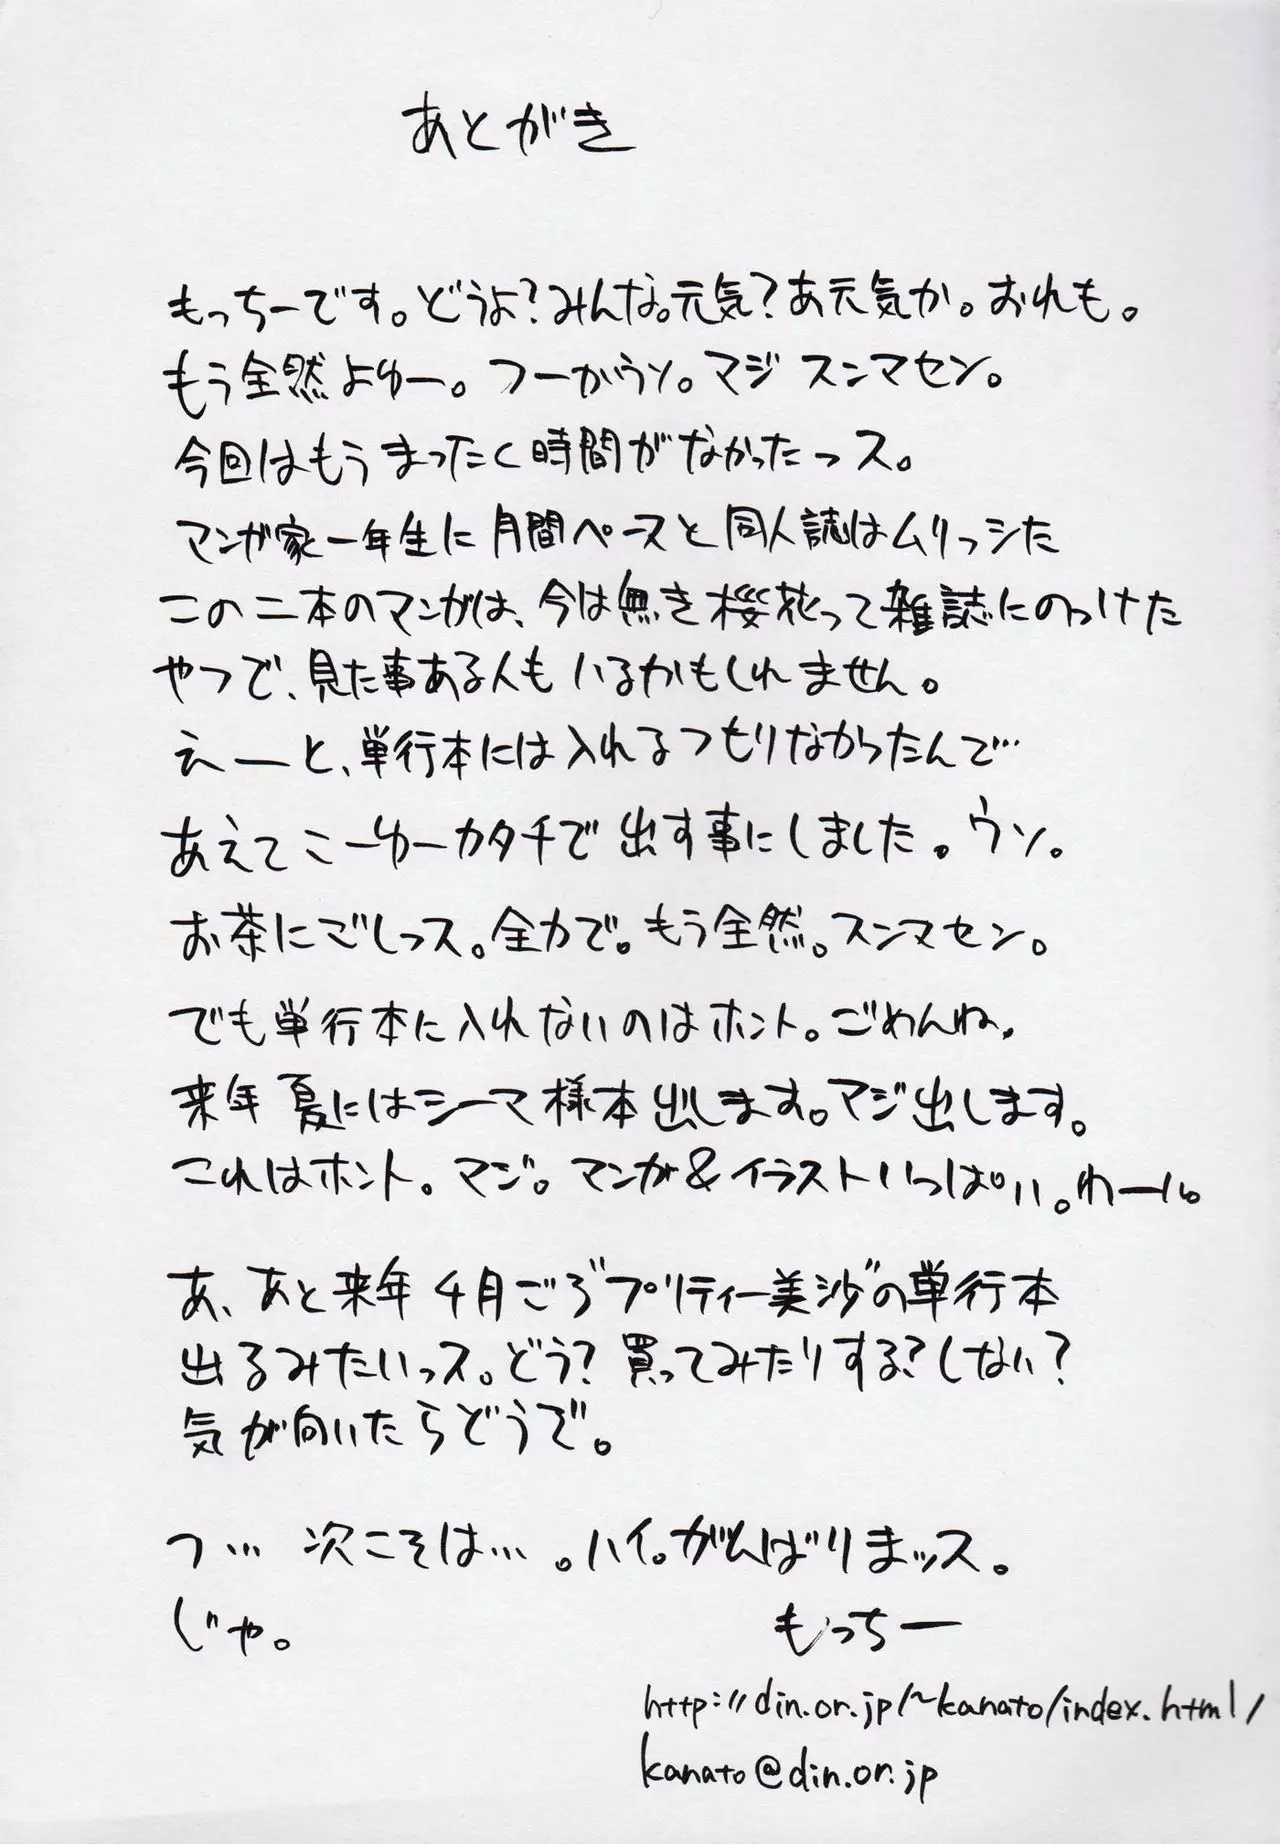 あとがき
もっちーです。どうよ?みんな。元気?あ元気か。おれも。
もう全然よゆー。つーかウソ。マジ スンマセン。
今回はもうまったく時間がなかったっス。
マンガ家一年生に月間ペースと同人誌はムリっシた
この二本のマンガは、今は無き桜花って雑誌にのっけた
やつで、見た事ある人もいるかもしれません。
えーと、単行本には入れるつもりなかったんで…
あえてこーゆーカタチで出す事にしました。ウソ。
お茶にごしっス。全力で。もう全然。スンマセン。
でも単行本に入れないのはホント。ごめんね。
来年夏にはシーマ様本出します。マジ出します。
これはホント。マジ。マンガ&イラストいっぱい。わーい。
あ、あと来年4月ごろ"プリティー美沙"の単行本
出るみたいっス。どう?買ってみたりする?しない?
気が向いたらどうぞ。
つ… 次こそは…。ハイ。がんばりまッス。
じゃ。
もっちー
http://din.or.jp/~kanato/index.html/
kanato@din.or.jp